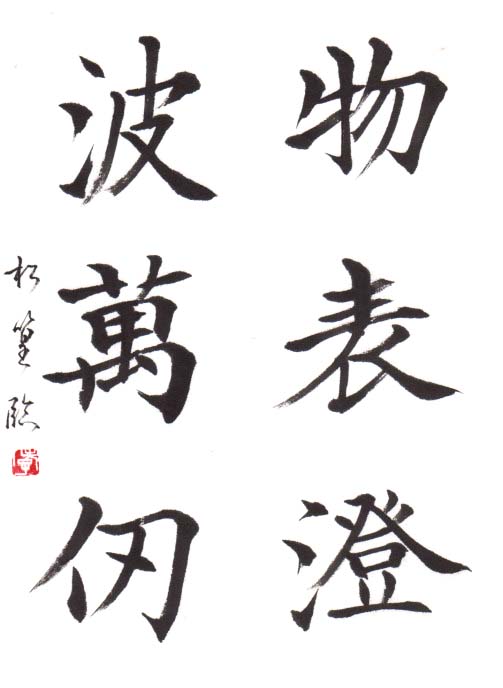 物表澄
波萬仞
松篁臨